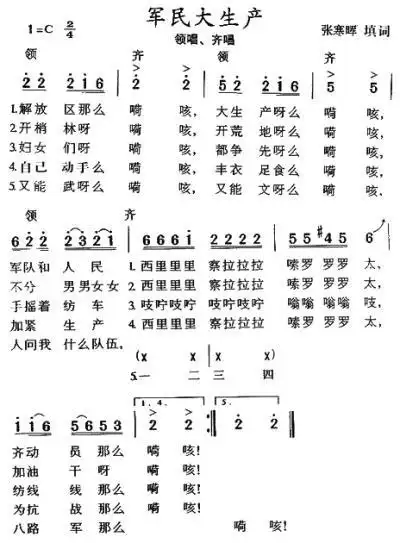 军民大生产
1=C 2/4
领唱、齐唱
张寒晖 填词
领 齐 领 齐
2 2 2 1 6 2 2 5 2 2 1 6 5 5
1.解放 区那么 嗬 咳, 大生 产呀么 嗬 咳,
2.开梢 林呀 嗬 咳, 开荒 地呀么 嗬 咳,
3.妇女 们呀 嗬 咳, 都争 先呀么 嗬 咳,
4.自己 动手么 嗬 咳, 丰衣 足食么 嗬 咳,
5.又能 武呀么 嗬 咳, 又能 文呀么 嗬 咳,
领 齐
6 2 2 2 3 2 1 6 6 6 1 2 2 2 2 5 5 #4 5 6
军队和 人 民 1.西里里里 察拉拉拉 嗦罗 罗罗 太,
不分 男男女女 2.西里里里 察拉拉拉 嗦罗 罗罗 太,
手摇着 纺 车 3.吱咛吱咛 吱咛吱咛 嗡嗡 嗡嗡 吱,
加紧 生 产 4.西里里里 察拉拉拉 嗦罗 罗罗 太,
人问我 什么队伍,
(x x x x)
5.一 二 三 四
1.4. 5.
1 1 6 5 6 5 3 2 2 2 2
齐动 员 那么 嗬 咳!
加油 干 呀 嗬 咳!
纺线 线 那么 嗬 咳!
为抗 战 那么 嗬 咳!
八路 军 那么 嗬 咳!